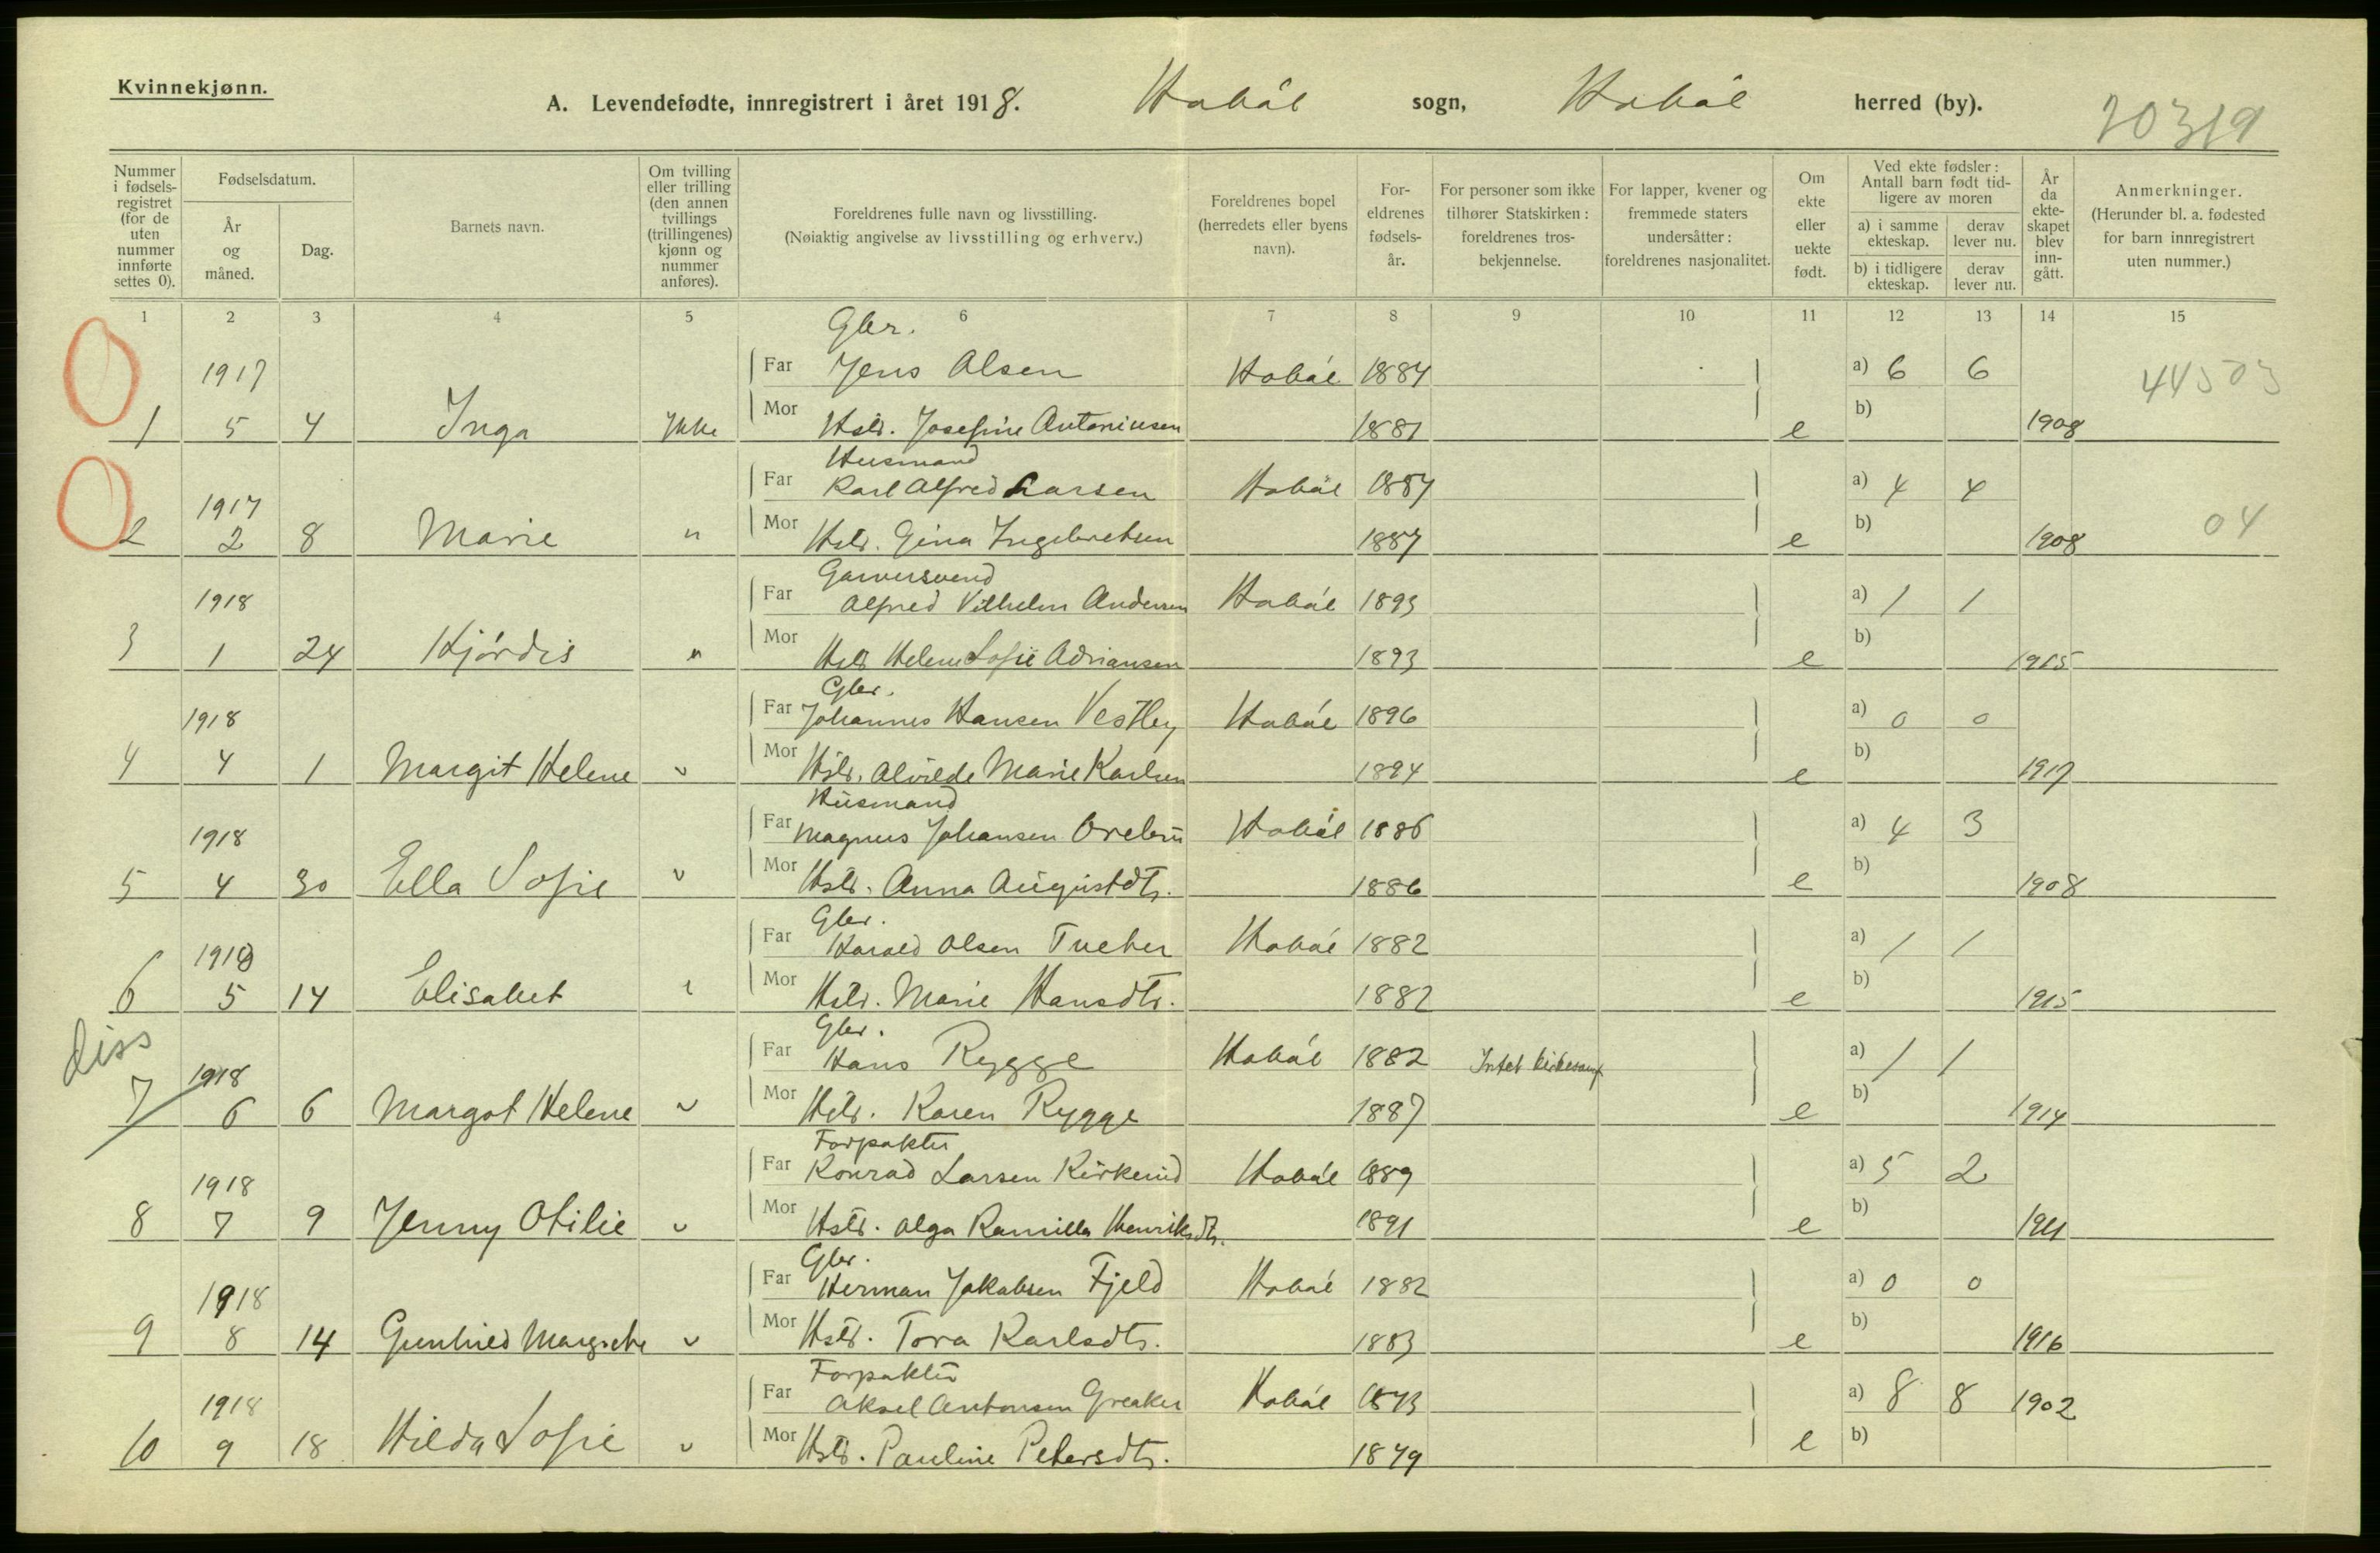 Kvinnekjønn.
A. Levendefødte, innregistrert i året 1918. Hobøl sogn, Hobøl herred (by).
20319
Nummer i fødselsregistret (for de uten nummer innførte settes 0).
Fødselsdatum.
År og måned.
Dag.
Barnets navn.
Om tvilling eller trilling (den annen tvillings (trillingenes) kjønn og nummer anføres).
Foreldrenes fulle navn og livsstilling.
(Nøiaktig angivelse av livsstilling og erhverv.)
Foreldrenes bopel (herredets eller byens navn).
Foreldrenes fødselsår.
For personer som ikke tilhører Statskirken: foreldrenes trosbekjennelse.
For lapper, kvener og fremmede staters undersåtter: foreldrenes nasjonalitet.
Om ekte eller uekte født.
Ved ekte fødsler: Antall barn født tidligere av moren
a) i samme ekteskap.
derav lever nu.
b) i tidligere ekteskap.
derav lever nu.
År da ekteskapet blev inngått.
Anmerkninger.
(Herunder bl. a. fødested for barn innregistrert uten nummer.)
1 2 3 4 5 6 7 8 9 10 11 12 13 14 15
Gbr.
1917 Far Jens Olsen Hobøl 1884 a) 6 6 44503
1 5 4 Inga Ikke Mor Hstr. Josefine Antoniusen 1881 e b) 1908
Husmand
1917 Far Karl Alfred Larsen Hobøl 1887 a) 4 4
2 2 8 Marie " Mor Hstr. Gina Ingebretsen 1887 e b) 1908 04
Garversvend
1918 Far Alfred Vilhelm Andersen Hobøl 1893 a) 1 1
3 1 24 Hjördis " Mor Hstr Helene Sofie Adriansen 1893 e b) 1915
Gbr.
1918 Far Johannes Hansen Vestby Hobøl 1896 a) 0 0
4 4 1 Margit Helene " Mor Hstr. Alvilde Marie Karlsen 1894 e b) 1917
Husmand
1918 Far Magnus Johansen Hobøl 1886 a) 4 3
5 4 30 Ella Sofie " Mor Hstr. Anna Augustdtr. 1886 e b) 1908
Gbr.
1918 Far Harald Olsen Tveter Hobøl 1882 a) 1 1
6 5 14 Elisabet " Mor Hstr. Marie Hansdtr. 1882 e b) 1915
diss
Gbr.
1918 Far Hans Rygge Hobøl 1882 Intet kirkesamf a) 1 1
7 6 6 Margot Helene " Mor Hstr. Karen Rygge 1887 e b) 1914
Forpakter
1918 Far Konrad Larsen Kirkerud Hobøl 1889 a) 5 2
8 7 9 Jenny Otilie " Mor Hstr. Olga Kamilla Henriksdtr. 1891 e b) 1911
Gbr.
1918 Far Herman Jakobsen Fjeld Hobøl 1882 a) 0 0
9 8 14 Gunhild Margrete " Mor Hstr. Tora Karlsdtr. 1883 e b) 1916
Forpakter
1918 Far Aksel Antonsen Greaker Hobøl 1873 a) 8 8 1902
10 9 18 Hilda Sofie " Mor Hstr. Pauline Petersdtr. 1879 e b)